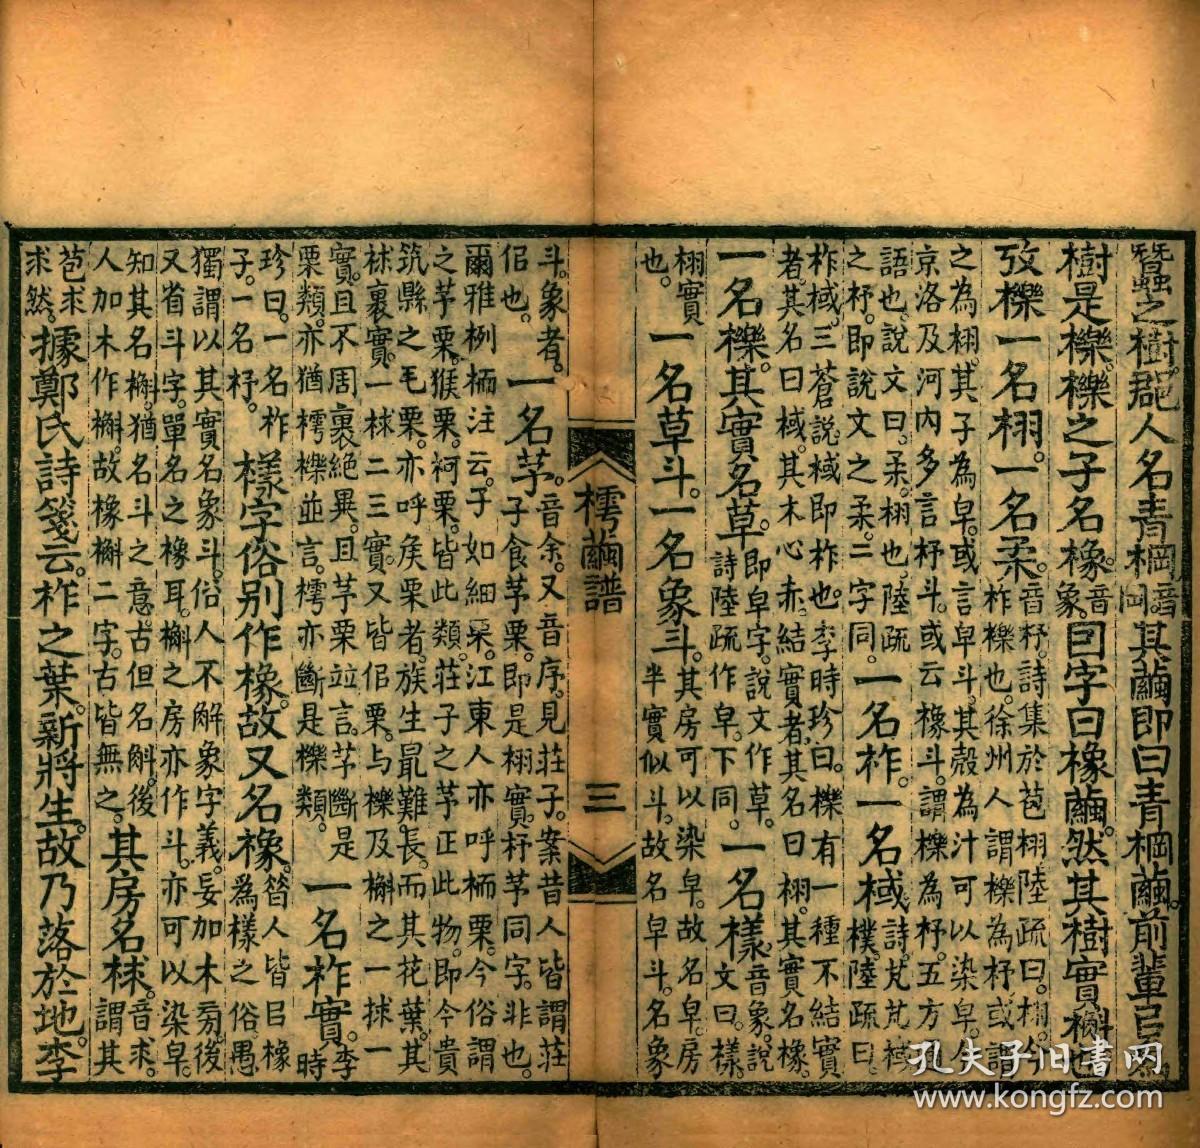 蠶之樹。郡人名青棡音岡其繭即曰青棡繭。前輩㠯為
樹是櫟。櫟之子名橡。音象。囙字曰橡繭。然其樹實槲也
攷櫟一名栩。一名柔。音杼。詩集於苞栩陸疏曰。栩。今
柞櫟也。徐州人謂櫟為杼或謂
之為栩。其子為皁。或言皁斗。其殼為汁可以染皁。今
京洛及河內多言杼斗。或云橡斗。謂櫟為杼。五方通
語也。說文曰。柔。栩也。陸疏
之杼。即說文之柔。二字同。一名柞。一名棫。詩。芃芃棫
樸。陸疏曰
柞棫。三蒼說棫即柞也。李時珍曰。櫟有一種不結實
者。其名曰棫。其木心赤。結實者。其名曰栩。其實名橡。
一名櫟。其實名草。即皁字。說文作草。
詩陸疏作皁。下同。一名樣。音象。說
文曰。樣。
栩實
也。一名草斗。一名象斗。其房可以染皁。故名皁房
半實似斗。故名皁斗。名象
樗繭譜
三
斗。象者。
佀也。一名芧。音余。又音序。見莊子。案昔人皆謂莊
子食芧栗。即是栩實。杼芧同字。非也。
爾雅栵栭注云。子如細栗。江東人亦呼栭栗。今俗謂
之芧栗。猴栗。柯栗。皆此類。莊子之芧正此物。即今貴
筑縣之毛栗。亦呼矦栗者。族生最難長。而其花葉。其
梂裹實。一梂二三實。又皆佀栗。與櫟及槲之一梂一
實。且不周裹絕異。且芧栗竝言。芧斷是
栗類。亦猶樗櫟並言。樗亦斷是櫟類。一名柞實。李
時
珍曰。一名柞
子。一名杼。樣字俗別作橡。故又名橡。昝人皆㠯橡
為樣之俗。愚
獨謂以其實名象斗。俗人不解象字義。妄加木旁後
又省斗字。單名之橡耳。槲之房亦作斗。亦可以染皁。
知其名槲。猶名斗之意。古但名斛。後
人加木作槲。故橡槲二字。古皆無之。其房名梂。音求。
謂其
苞求
求然。據鄭氏詩箋云。柞之葉。新將生。故乃落於地。李
孔夫子旧书网
www.kongfz.com